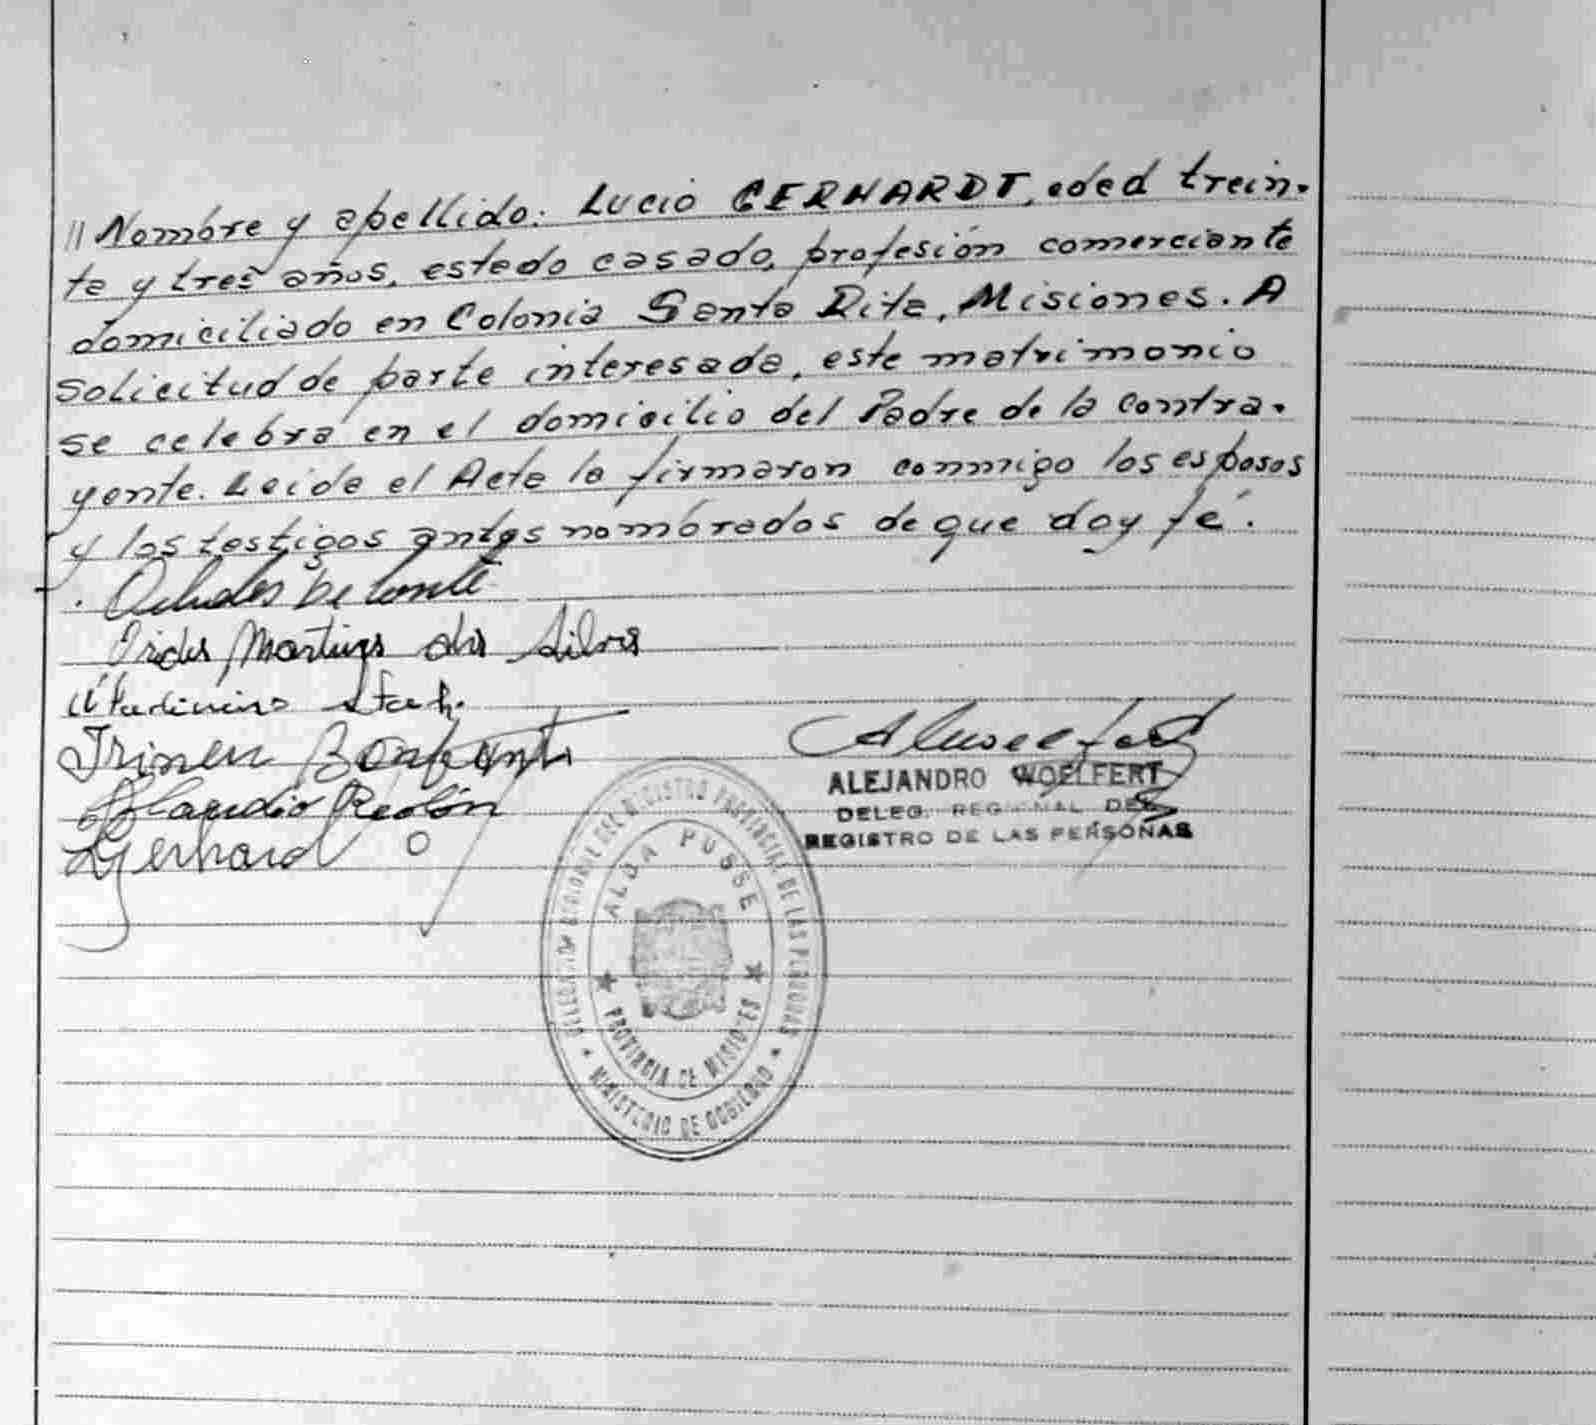 // Nombre y apellido: Lucio GERHARDT, edad trein-
ta y tres años, estado casado, profesión comerciante
domiciliado en Colonia Santa Rita, Misiones. A
solicitud de parte interesada, este matrimonio
se celebra en el domicilio del Padre de la contra-
yente. Leida el Acta la firmaron conmigo los esposos
y los testigos antes nombrados de que doy fé.
Martins da Silva
Stah.
Irineu
Claudio Reolón
LGerhard
ALEJANDRO WOELFERT
DELEG. REGIONAL DEL
REGISTRO DE LAS PERSONAS
DELEGACION REGIONAL DEL REGISTRO PROVINCIAL DE LAS PERSONAS
ALBA POSSE
PROVINCIA DE MISIONES
MINISTERIO DE GOBIERNO